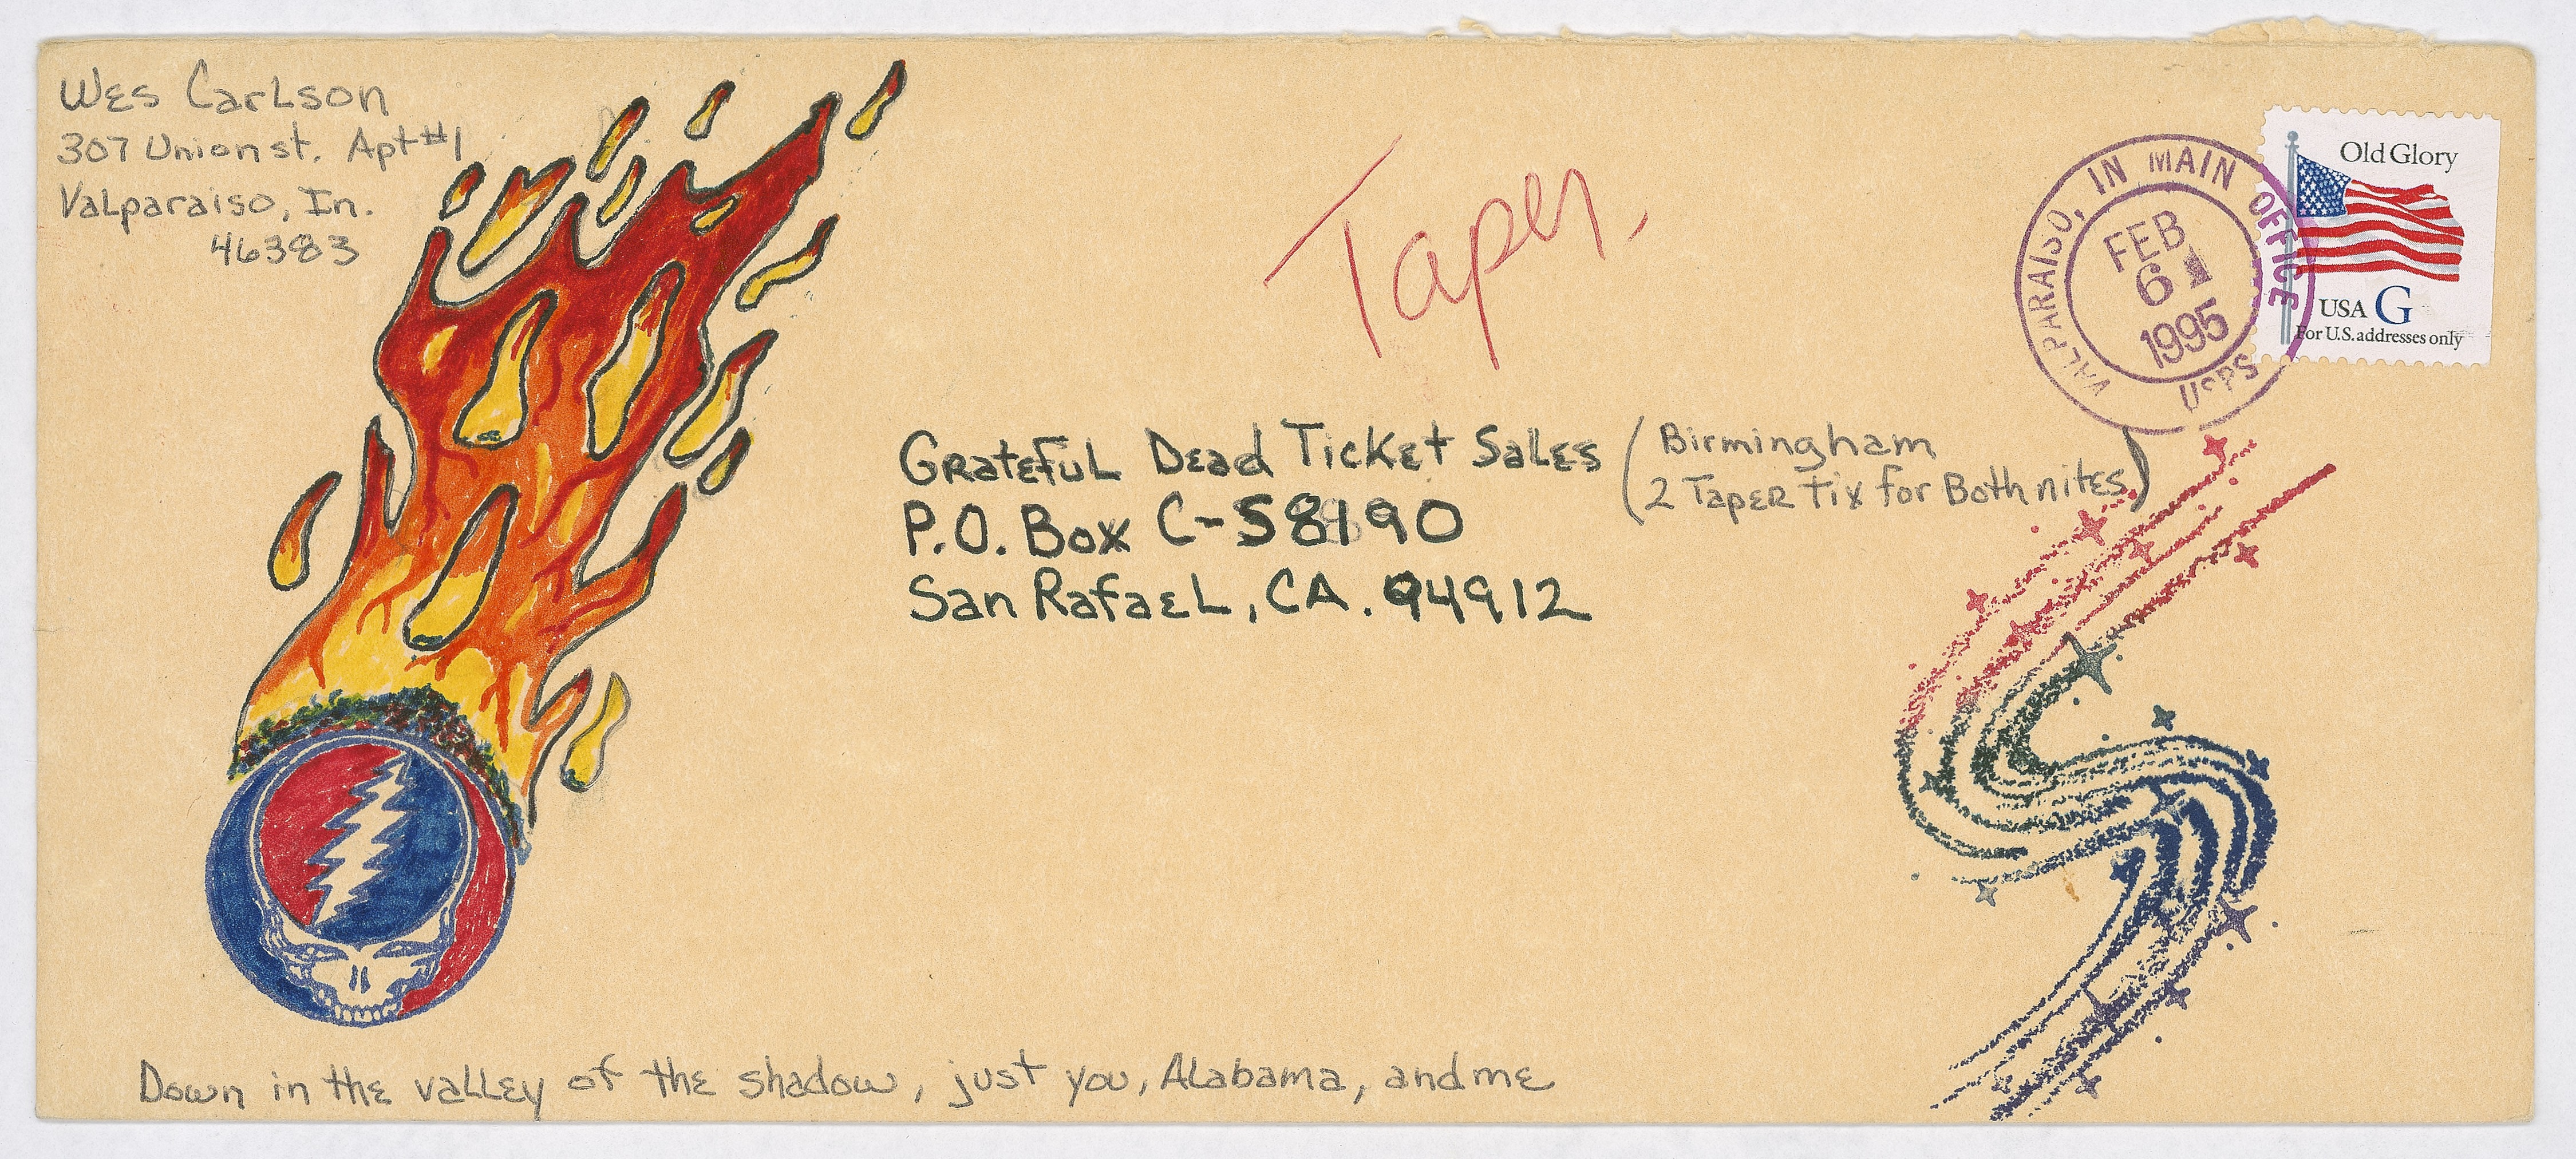 Wes Carlson
307 Union st. Apt #1
Valparaiso, In.
46383
Taper
VALPARAISO, IN MAIN OFFICE
FEB
6 1
1995
USPS
Old Glory
USA G
For U.S. addresses only
Grateful Dead Ticket Sales
P.O. Box C-S8190
San Rafael, CA. 94912
(Birmingham
2 Taper tix for Both nites)
Down in the valley of the shadow, just you, Alabama, and me